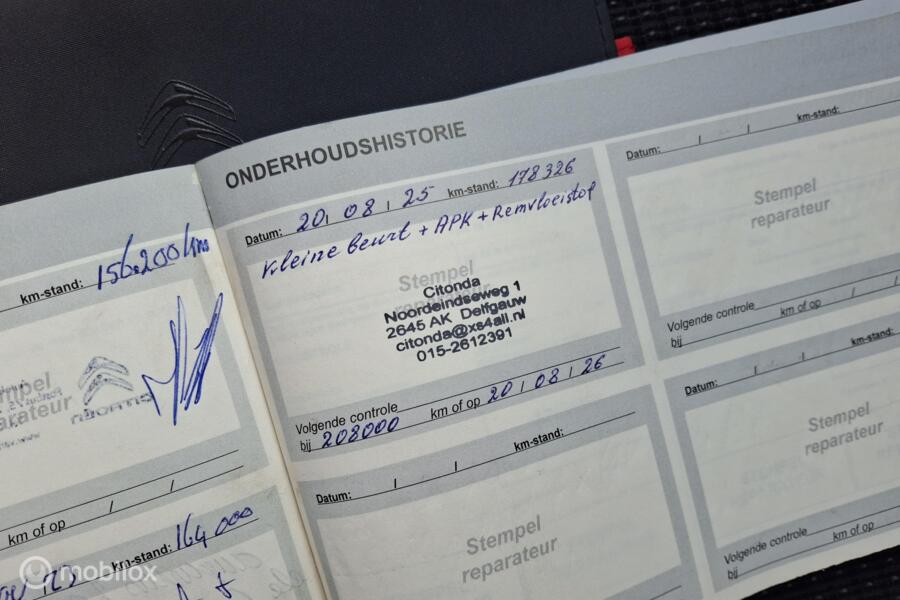 ONDERHOUDSHISTORIE
km-stand: 156.200 kms
Stempel
reparateur
CITROËN
km of op / /
km-stand: 164.000
Datum: 20 / 08 / 25 km-stand: 178326
Kleine beurt + APK + Remvloeistof
Stempel
Citonda
Noordeindseweg 1
2645 AK Delfgauw
citonda@xs4all.nl
015-2612391
Volgende controle
bij 208000 km of op 20 / 08 / 26
Datum: / / km-stand:
Stempel
reparateur
Datum: / / km-stand:
Stempel
reparateur
Volgende controle
bij km of op / /
Datum: / / km-stand:
Stempel
reparateur
Volgende controle
bij km of op
mobilox